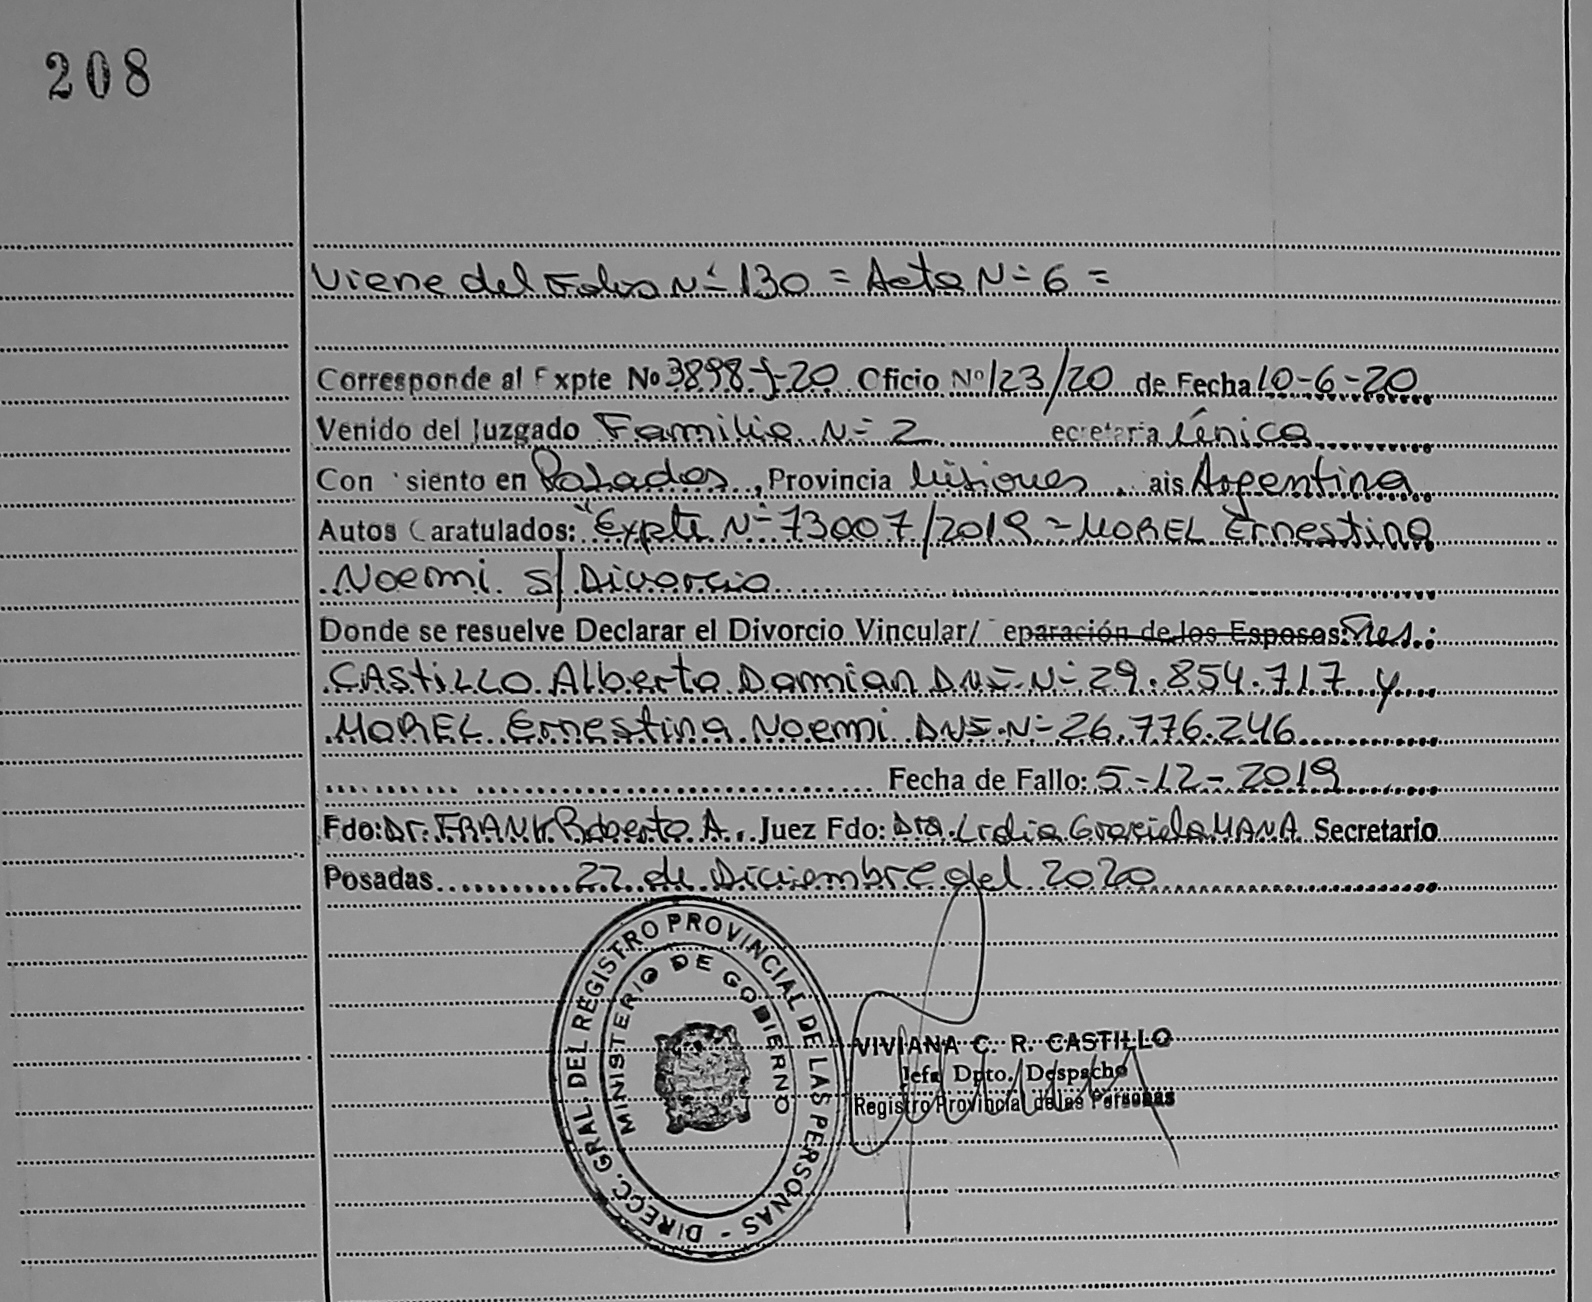 208
Viene del Folio Nº 130 = Acta Nº 6 =
Corresponde al Expte No 3898-J-20 Oficio Nº 123/20 de Fecha 10-6-20
Venido del Juzgado Familia Nº 2 ecretaria Única
Con siento en Posadas, Provincia Misiones, ais Argentina
Autos Caratulados: "Expte Nº 73007/2019 = MOREL Ernestina
Noemi s/ Divorcio
Donde se resuelve Declarar el Divorcio Vincular/ eparación de los Esposos: Sres.:
CASTILLO Alberto Damian DNI Nº 29.854.717 y
MOREL Ernestina Noemi DNI Nº 26.776.246
Fecha de Fallo: 5-12-2019
Fdo: Dr. FRANK Roberto A., Juez Fdo: Dra. Lidia Graciela Secretario
Posadas 22 de Diciembre del 2020
DIRECC. GRAL. DEL REGISTRO PROVINCIAL DE LAS PERSONAS -
MINISTERIO DE GOBIERNO
VIVIANA C. R. CASTILLO
Jefa Dpto. Despacho
Registro Provincial de las Personas